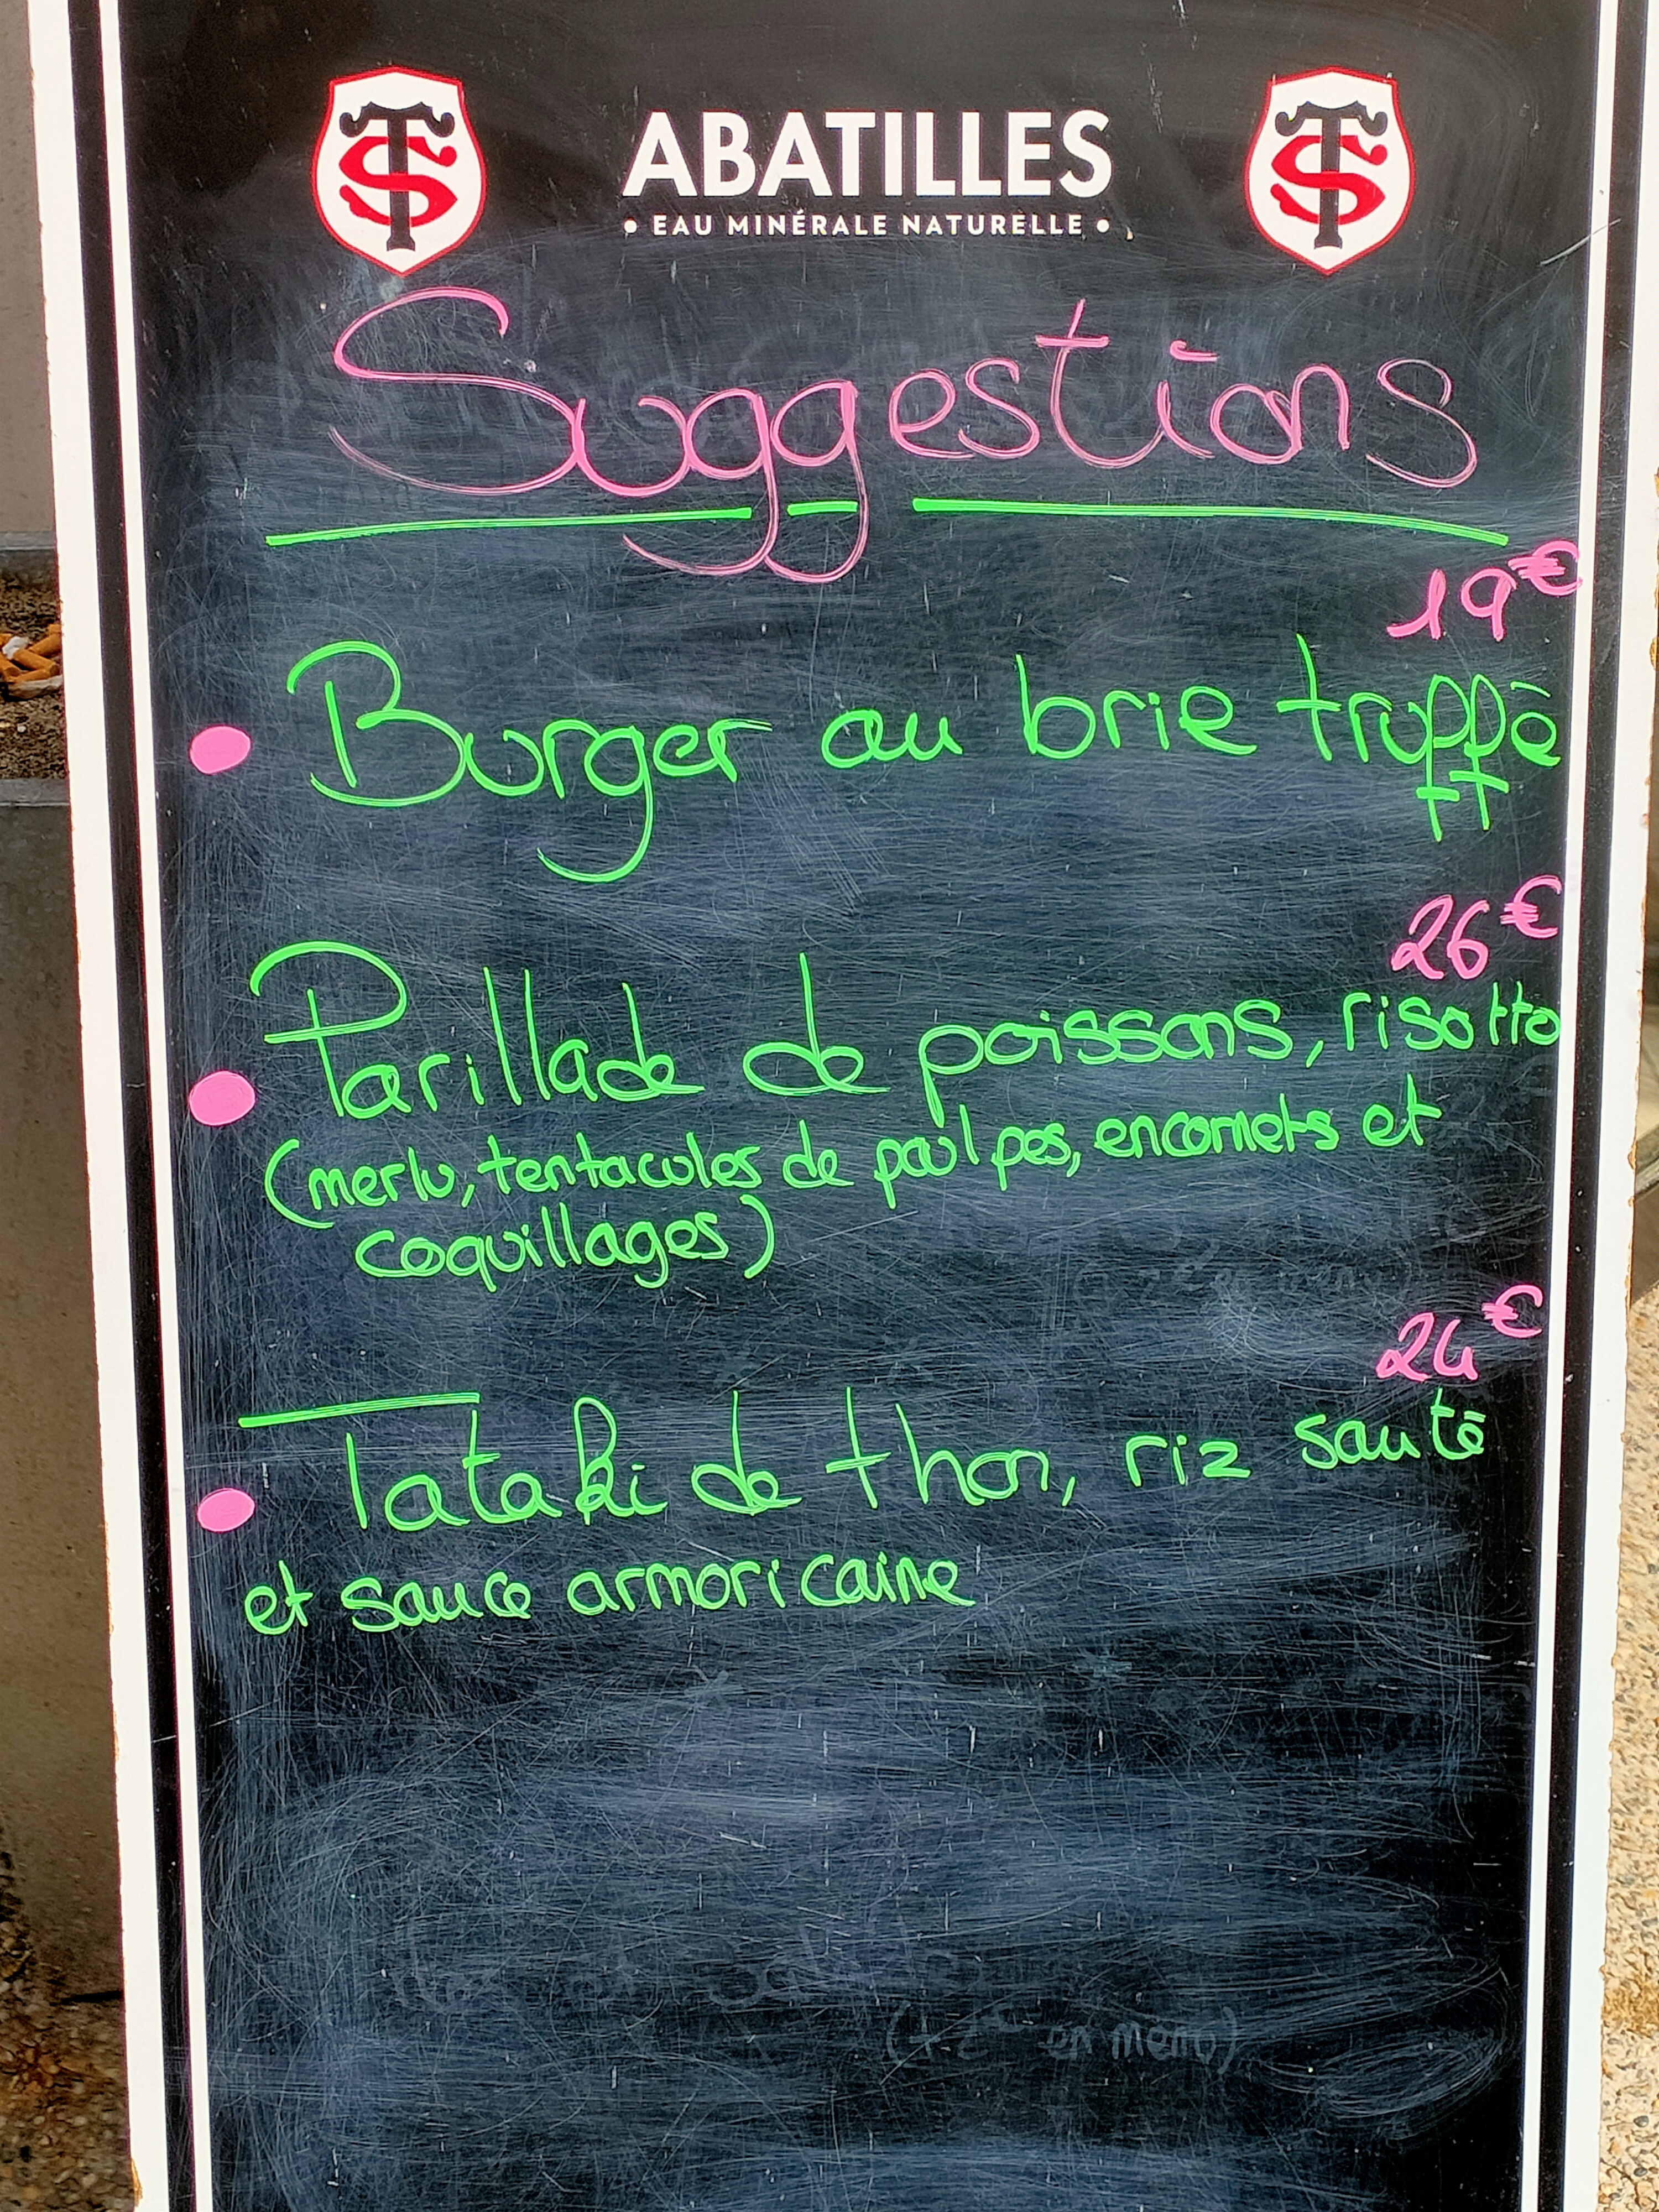 ABATILLES
• EAU MINÉRALE NATURELLE •
Suggestions
19€
• Burger au brie truffé
26€
• Parillade de poissons, risotto
(merlu, tentacules de poulpes, encornets et
coquillages)
24€
• Tataki de thon, riz sauté
et sauce armoricaine
(+2€ en menu)